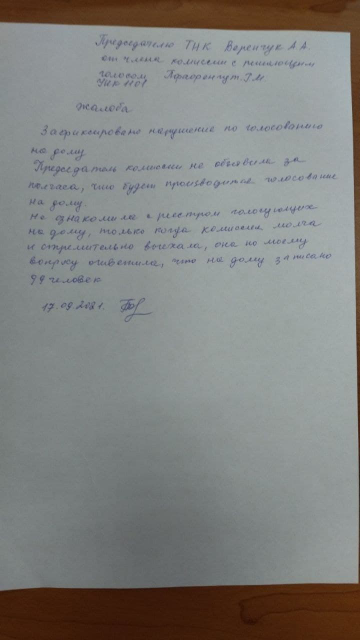 Председателю ТИК Воренчук А.А.
от члена комиссии с решающим
голосом Г.М
УИК 1101
Жалоба
Зафиксировано нарушение по голосованию
на дому.
Председатель комиссии не объявила за
полчаса, что будет производится голосование
на дому.
Не ознакомила с реестром голосующих
на дому, только когда комиссия молча
и стремительно выехала, она по моему
вопросу, что на дому записано
99 человек
17.09.2021.